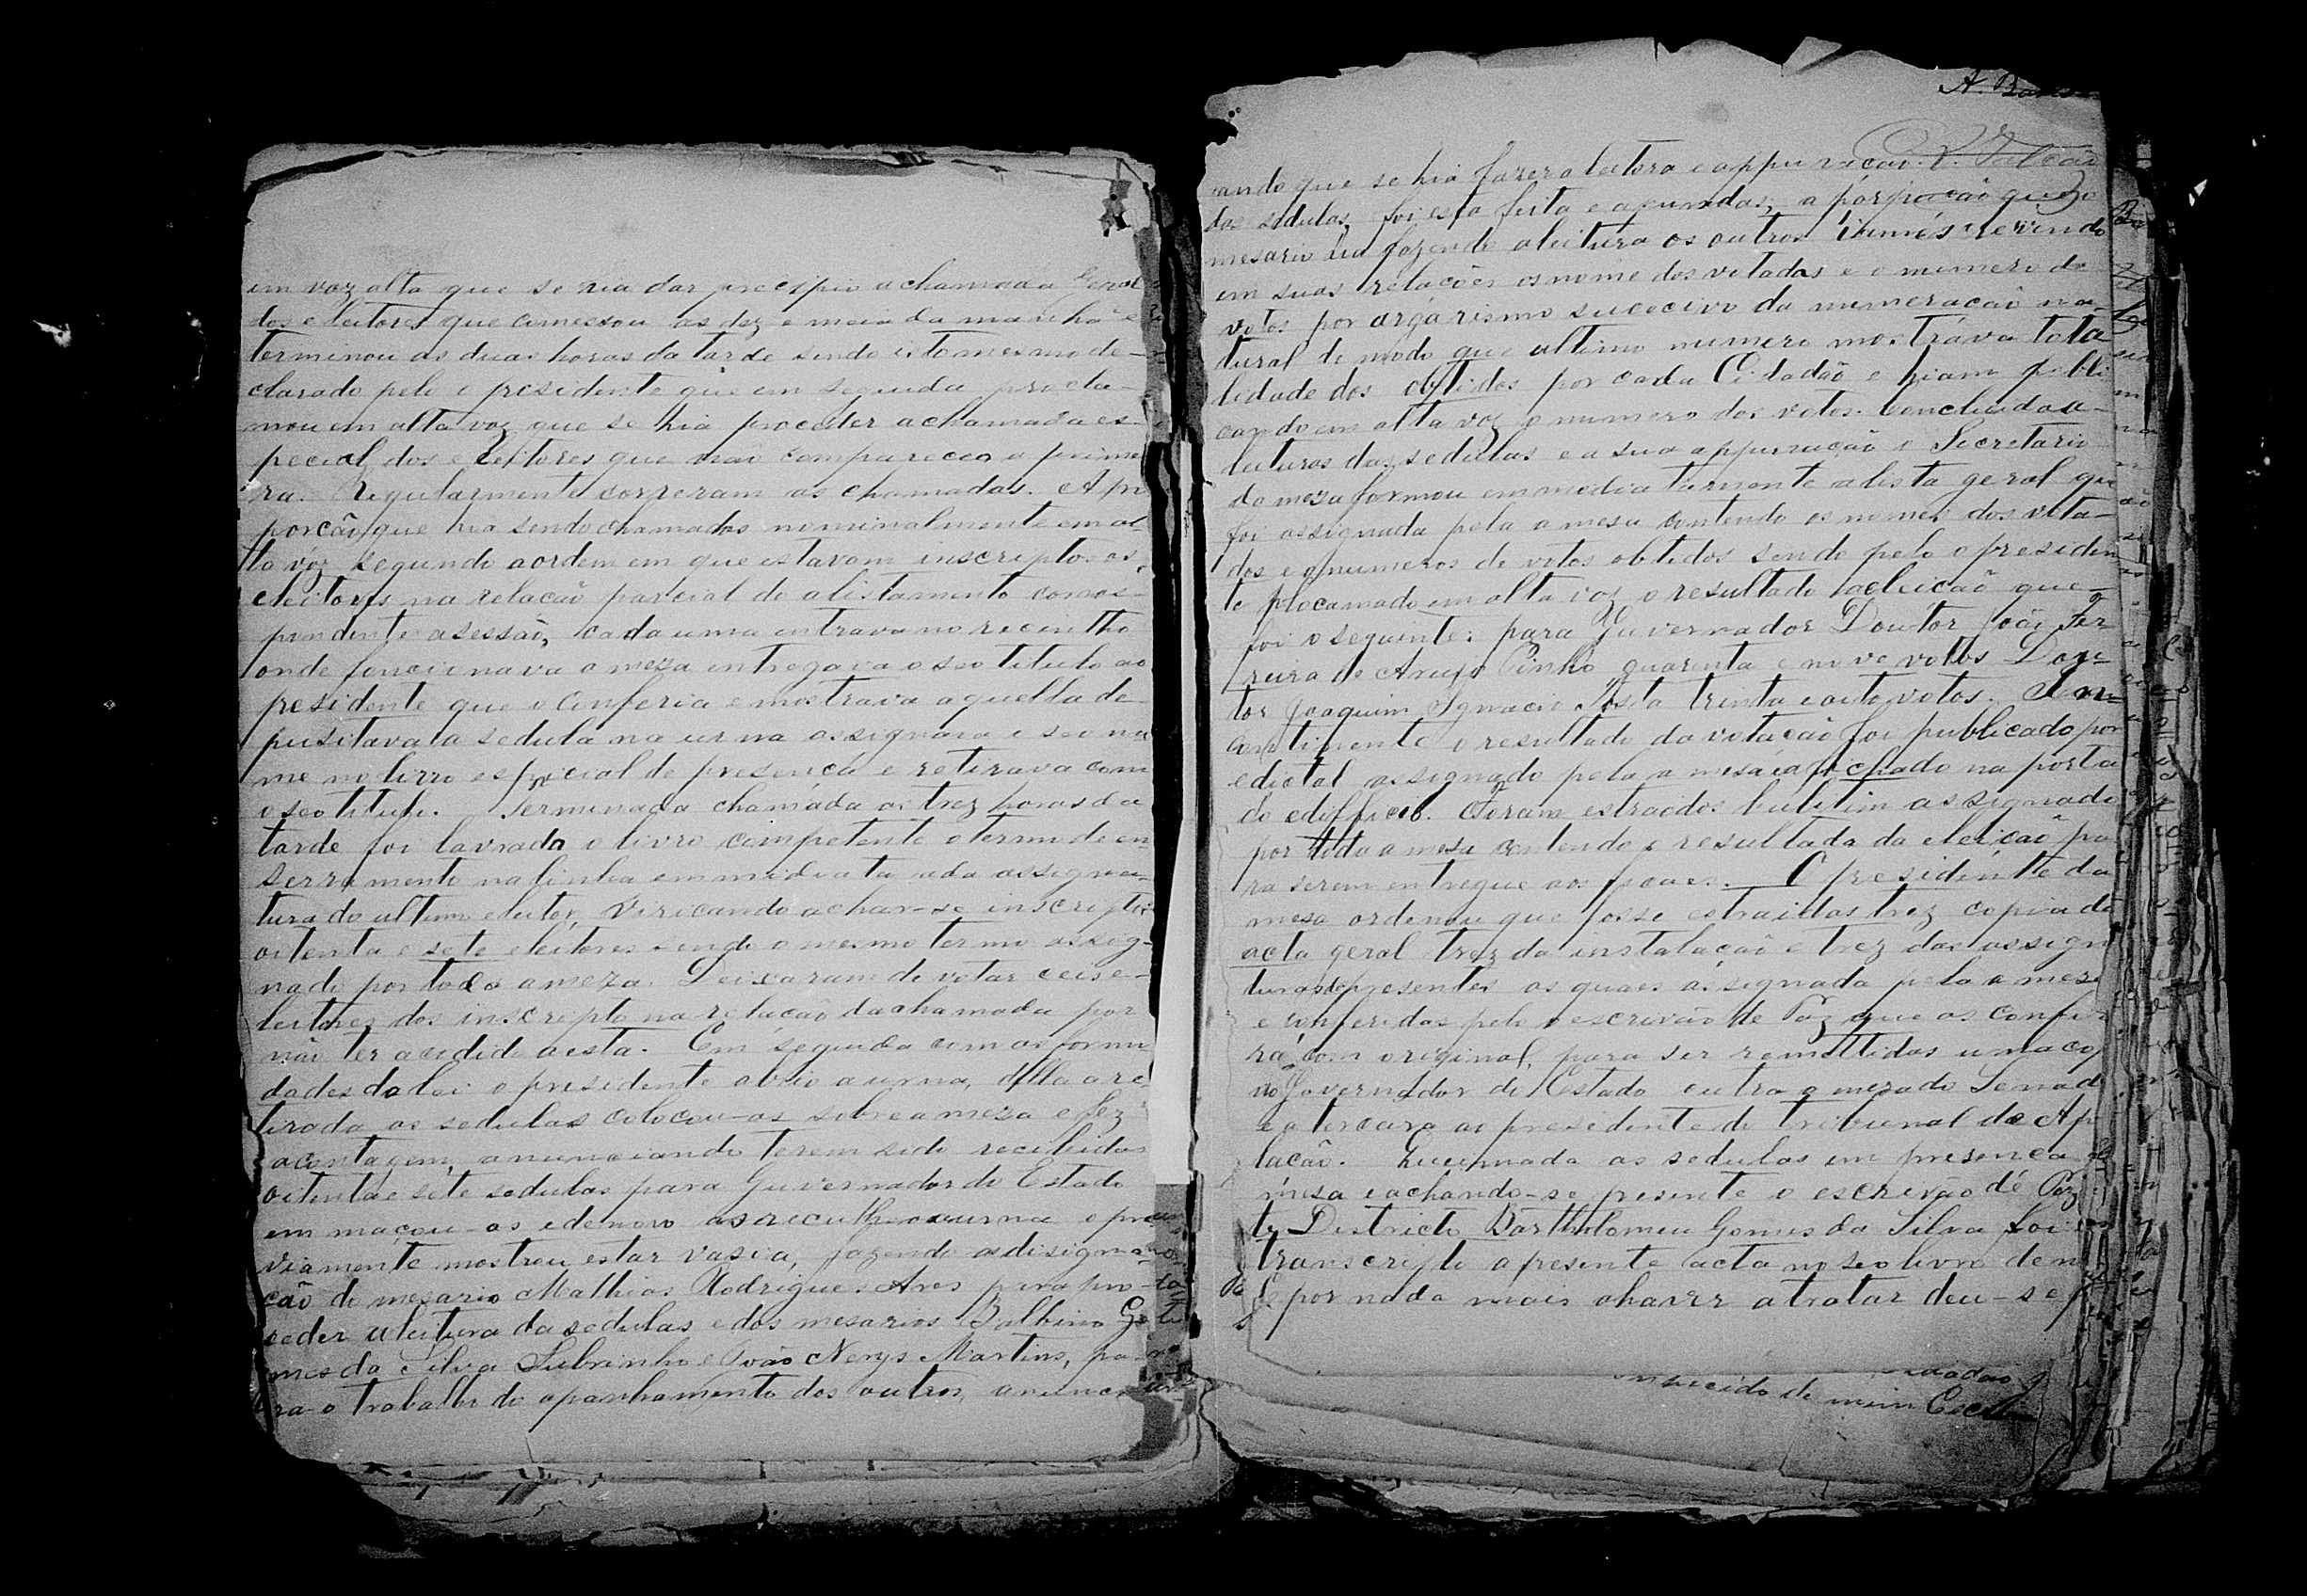 em voz alta que se hia dar precipio a chamada geral
dos eleitores que comessou as dez e meia da manhã e
terminou as duas horas da tarde sendo isto mesmo de-
clarado pelo o presidente que em seguida procla-
mou em alta voz que se hia proceder a chamada es-
pecial dos eleitores que não compareceo a primei
ra. Regularmente correram as chamadas. A pro
porcão que hia sendo chamados nominalmente em al
ta vóz segundo a ordem em que estavam inscriptos os
eleitores na relacão parcial do alistamento corres-
pondente a sessão, cada uma entrava no recintho
onde foncionava a meza entregava o seo titulo ao
presidente que o conferia e mostrava aquella de-
pusitava a sedula na urna assignava e seo no
me no livro especial de presenca e retirava com
o seo titulo. Terminada chamada as trez horas da
tarde foi lavrado o livro competente o termo de en-
serramento na linha emmidiata a da assigna-
tura do ultimo eleitor, viricando achar-se inscriptos
oitenta e sete eleitores sendo o mesmo termo assig-
nado por toda a meza. Deixaram de votar ceis e-
leitores dos inscripto na relacão da chamada por
não ter acodido a esta. Em seguida com as formu
dades da lei o presidente abrio a urna, della a re
tirada as sedulas colocou-as sobre a meza e fez
a contagem, anunciando terem sido recebidas
oitenta e sete sedulas para Guvernador do Estado
em maçou-as e de novo as recolheo a urna o pre
viamente mostrou estar vasia, fazendo a disigna
cão do mezario Mathias Rodrigues Ares para pro-
ceder a leitura da sedulas e dos mesarios Balbino Go
mes da Silva Subrinho e João Nerys Martins, pa-
ra o trabalho do apanhamento dos outros, anunci
A.
ando que se hia fazer a leitora e appuracão
das sedulas, foi esta feita e apuradas, a porporcão que o
mesario lia fazendo a leitura os outros iam escrevendo
em suas relacões os nome dos votados e o numero do
votos por argarismo sucocivo da numeracão na-
tural de modo que ultimo numero mostráva tota
lidade dos obtidos por cada Cidadão e hiam publi
cando em alta voz o numero dos votos. Concluida a
leituras das sedulas e a sua appuracão o Secretario
da meza formou emmediatamente a lista geral que
foi assignada pela a mesa contendo os nomes dos vota-
dos e o numeros de votos obtidos sendo pelo o presiden
te plocamado em alta voz o resultado da eleicão que
foi o seguinte: para Guvernador Doutor João Fer
reira de Araujo Pinho quarenta e nove votos Dou-
tor Joaquim Ignacio Tosta trinta e oito votos. In-
contimente o resultado da votacão foi publicado por
edictal assignado pela a mesa e afichado na porta
do edifficio. Foram estraidos bulitim assignado
por toda a mesa contendo o resultado da eleicão pa
ra serem entregue aos fiscaes. O presidente da
mesa ordenou que fosse estraidas trez copia da
acta geral trez da instalacão e trez das assigna
turas de presentes as quaes assignada pela a mesa
e conferidas pelo o escrivão de Paz que as confir
rá com original, para ser remettidas uma cop
ao Governador do Estado outra a meza do Senad
e a terceira ao presidente do tribunal de Ap
lacão. as sedulas em presenca
mesa e achando-se presente o escrivão de Paz
te Districto Bartholomeu Gomes da Silva foi
transcripto a presente acta no seo livro de n
E por nada mais ohaver a tratar deu-se
de mim